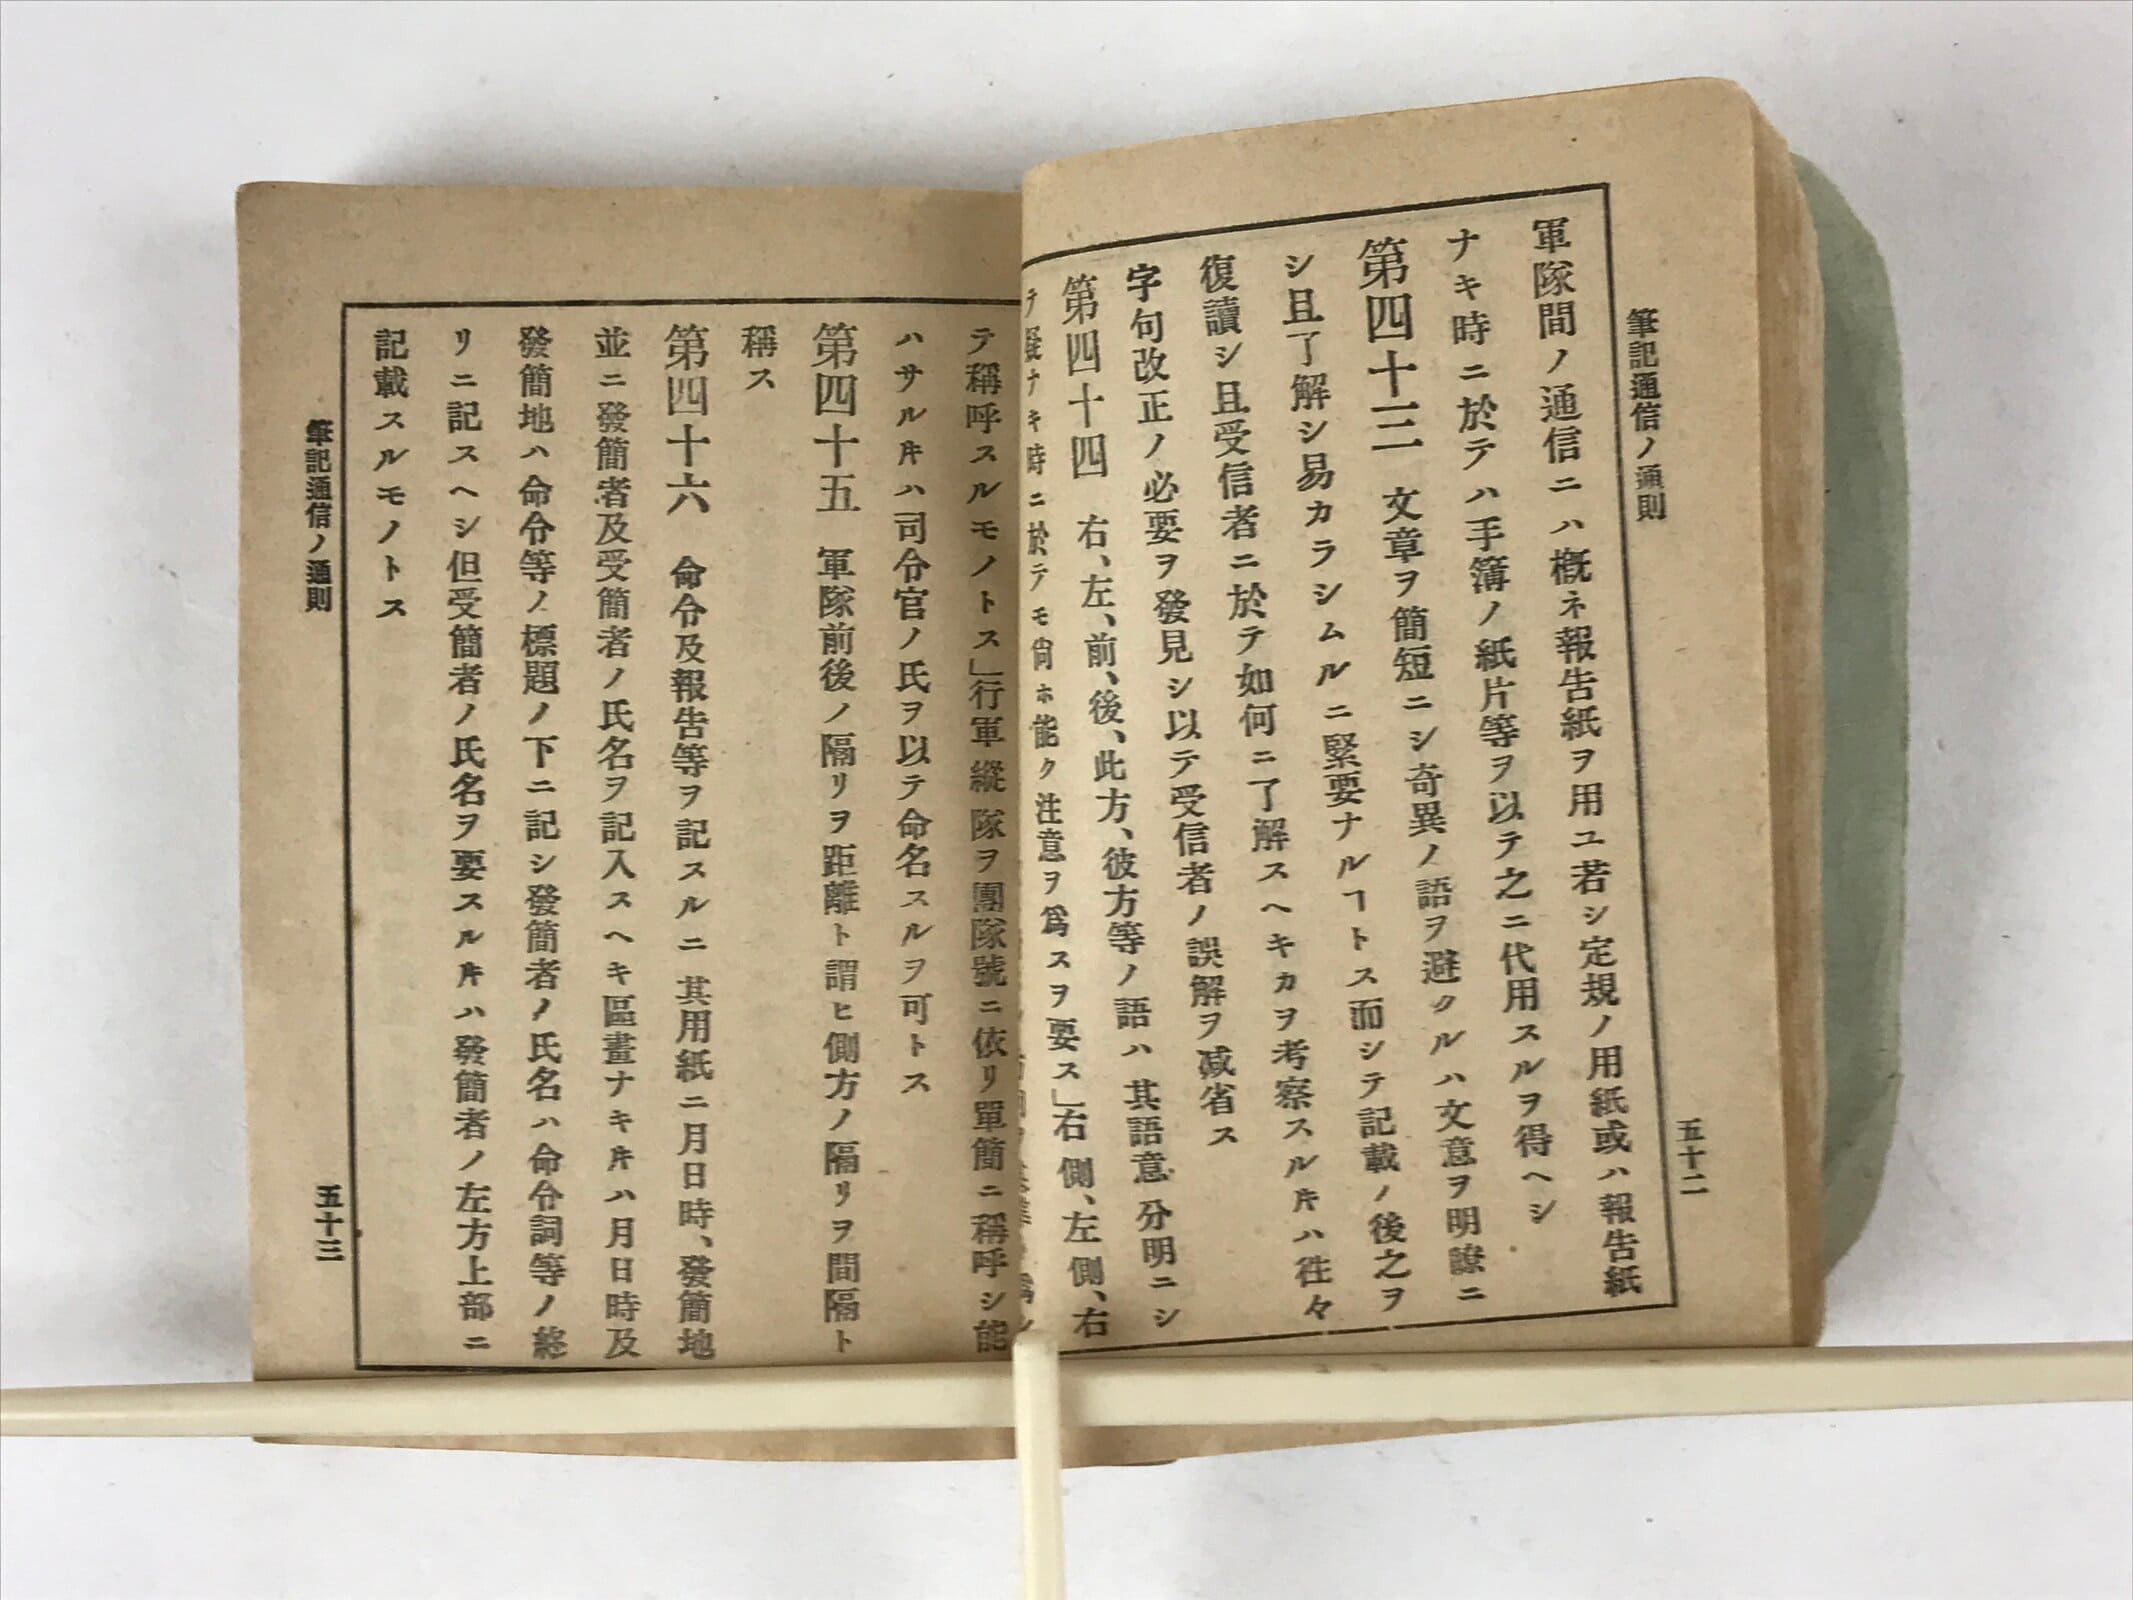 筆記通信ノ通則
五十二
軍隊間ノ通信ニハ槪ネ報告紙ヲ用ユ若シ定規ノ用紙或ハ報告紙
ナキ時ニ於テハ手簿ノ紙片等ヲ以テ之ニ代用スルヲ得ヘシ
第四十三 文章ヲ簡短ニシ奇異ノ語ヲ避クルハ文意ヲ明瞭ニ
シ且了解シ易カラシムルニ緊要ナルヿトス而シテ記載ノ後之ヲ
復讀シ且受信者ニ於テ如何ニ了解スヘキカヲ考察スルㇶハ徃々
字句改正ノ必要ヲ發見シ以テ受信者ノ誤解ヲ减省ス
第四十四 右、左、前、後、此方、彼方等ノ語ハ其語意分明ニシ
テ疑ナキ時ニ於テモ尙ホ能ク注意ヲ爲スヲ要ス」右側、左側、右
テ稱呼スルモノトス」行軍縱隊ヲ團隊號ニ依リ單簡ニ稱呼シ能
ハサルㇶハ司令官ノ氏ヲ以テ命名スルヲ可トス
第四十五 軍隊前後ノ隔リヲ距離ト謂ヒ側方ノ隔リヲ間隔ト
稱ス
第四十六 命令及報告等ヲ記スルニ其用紙ニ月日時、發簡地
並ニ發簡者及受簡者ノ氏名ヲ記入スヘキ區畫ナキㇶハ月日時及
發簡地ハ命令等ノ標題ノ下ニ記シ發簡者ノ氏名ハ命令詞等ノ終
リニ記スヘシ但受簡者ノ氏名ヲ要スルㇶハ發簡者ノ左方上部ニ
記載スルモノトス
筆記通信ノ通則
五十三